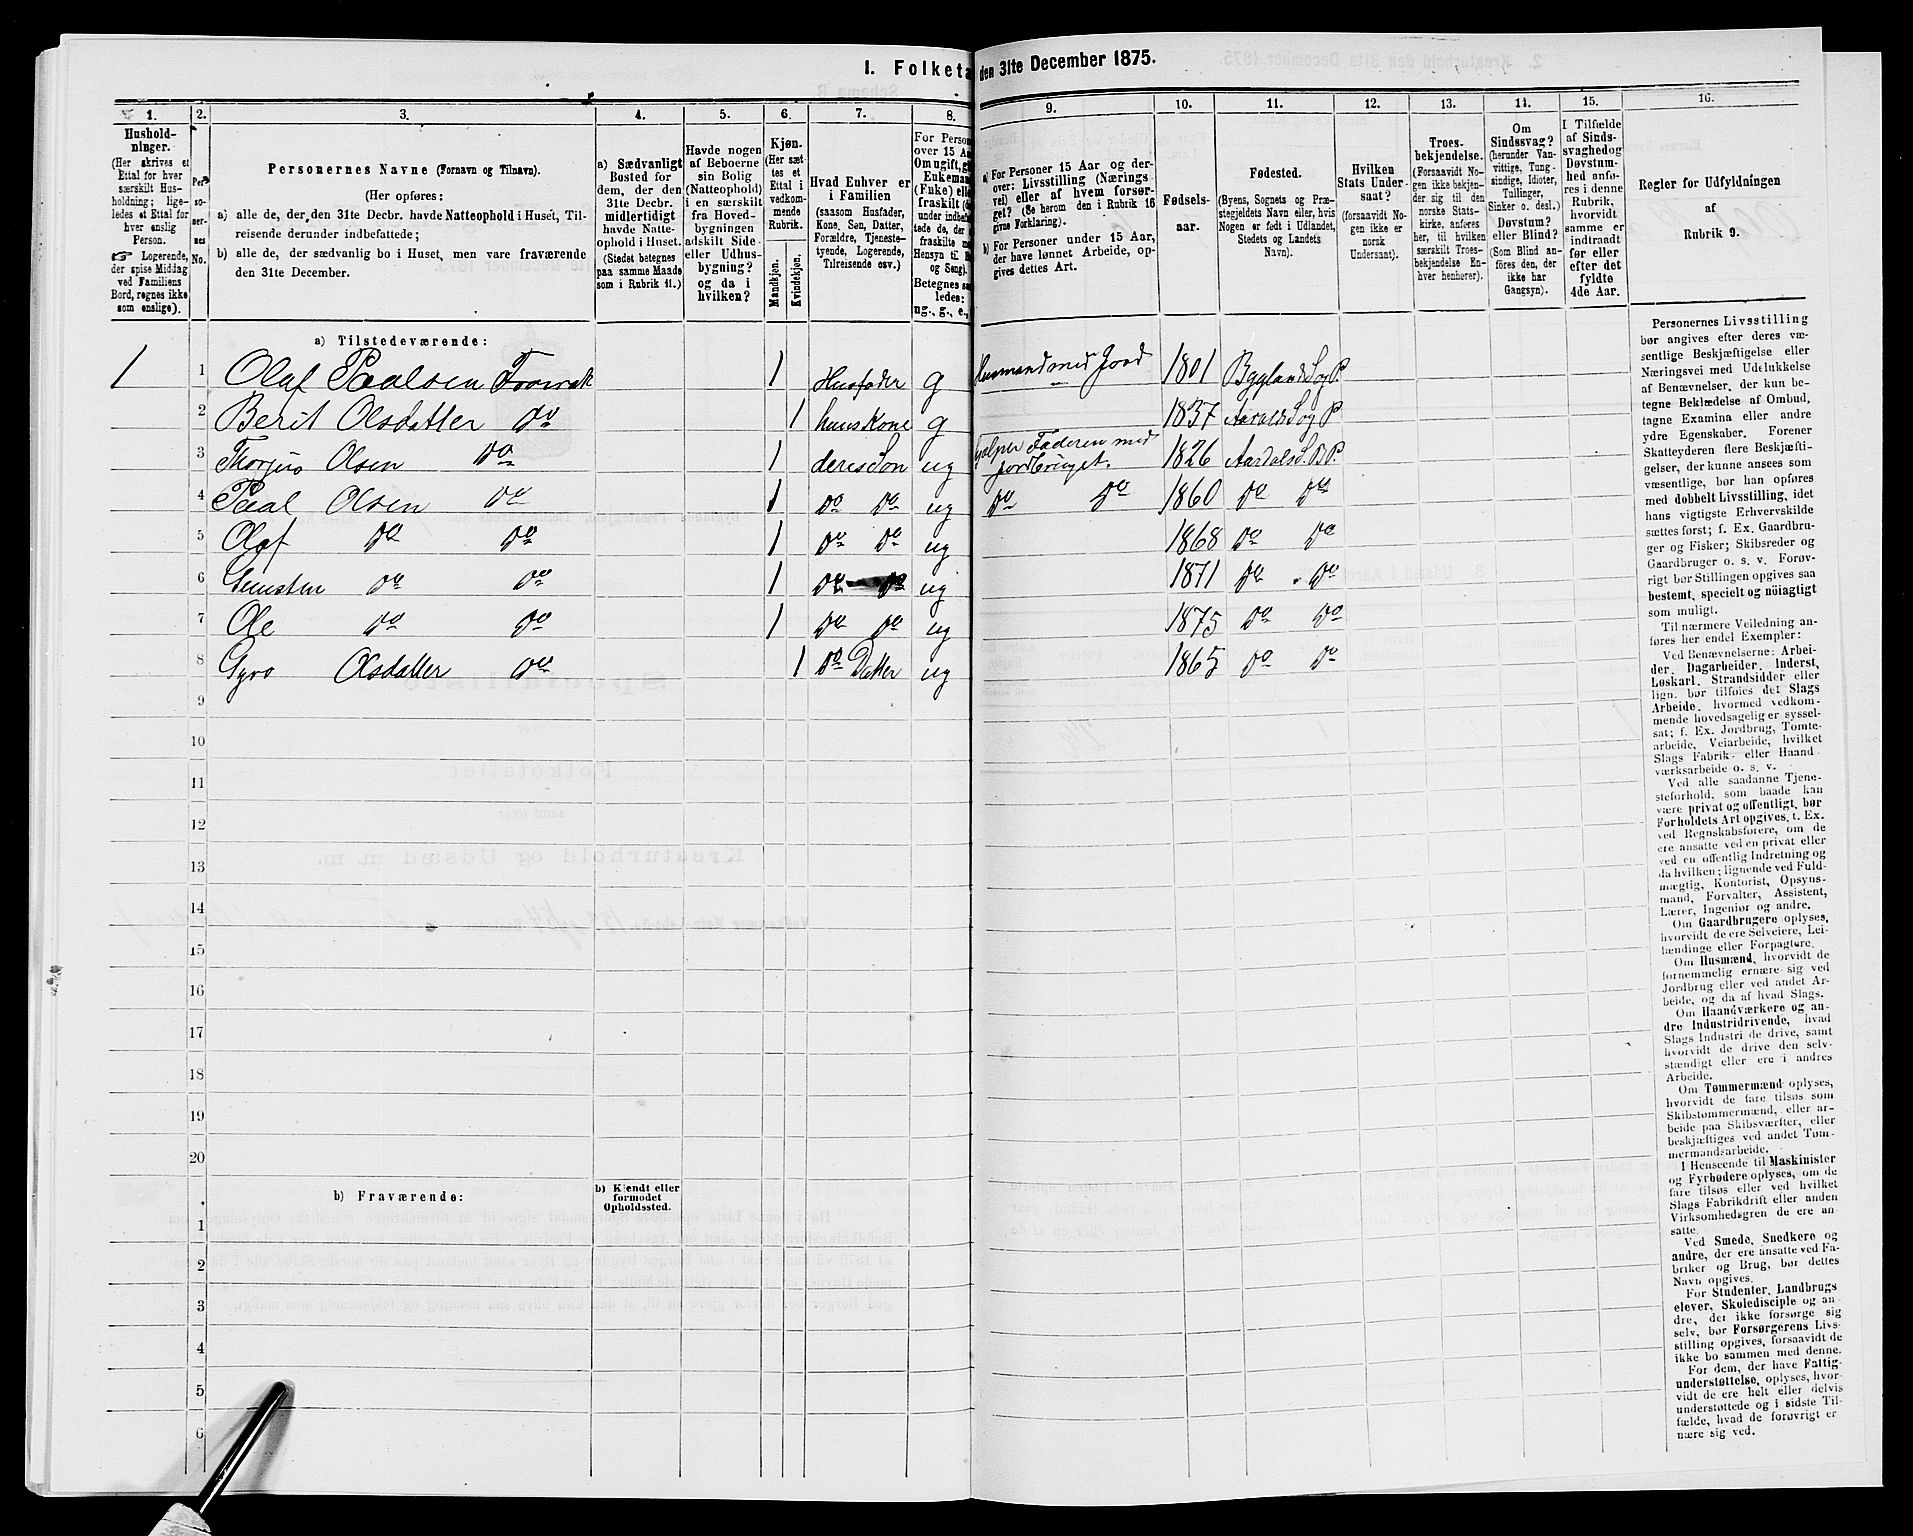 I. Folketa den 31te December 1875.
1. 2. 3. 4. 5. 6. 7. 8. 9. 10. 11. 12. 13. 14. 15. 16.
Hushold-
ninger.
(Her skrives et
Ettal for hver
særskilt Hus-
holdning; lige-
ledes et Ettal for
hver enslig
Person.
☞ Logerende,
der spise Middag
ved Familiens
Bord, regnes ikke
som enslige).
Per-
so-
ner-
nes
No.
Personernes Navne (Fornavn og Tilnavn).
(Her opføres:
a) alle de, der den 31te Decbr. havde Natteophold i Huset, Til-
reisende derunder indbefattede;
b) alle de, der sædvanlig bo i Huset, men vare fraværende
den 31te December.
a) Sædvanligt
Bosted for
dem, der den
31te Decbr.
midlertidigt
havde Natte-
ophold i Huset.
(Stedet betegnes
paa samme Maade
som i Rubrik 11.)
Havde nogen
af Beboerne
sin Bolig
(Natteophold)
i en særskilt
fra Hoved-
bygningen
adskilt Side-
eller Udhus-
bygning?
og da i
hvilken?
Kjøn.
(Her sæt-
tes et
Ettal i
vedkom-
mende
Rubrik.
Mandkjøn.
Kvindekjøn.
Hvad Enhver er
i Familien
(saasom Husfader,
Kone, Søn, Datter,
Forældre, Tjeneste-
tyende, Logerende,
Tilreisende osv.)
For Person
over 15 Aa
Om ugift, gi
Enkeman
(Fuke) elle
fraskilt (d
under indbe
tede de, de
fraskilte m
Hensyn til B
og Seng).
Betegnes sa
ledes:
ug., g., e.,
a) For Personer 15 Aar og der-
over: Livsstilling (Nærings-
vei) eller af hvem forsør-
get? (Se herom den i Rubrik 16
givne Forklaring).
b) For Personer under 15 Aar,
der have lønnet Arbeide, op-
gives dettes Art.
Fødsels-
aar.
Fødested.
(Byens, Sognets og Præ-
stegjeldets Navn eller, hvis
Nogen er født i Udlandet,
Stedets og Landets
Navn).
Hvilken
Stats Under-
saat?
(forsaavidt No-
gen ikke er
norsk
Undersaat).
Troes-
bekjendelse.
(Forsaavidt No-
gen ikke bekjen-
der sig til den
norske Stats-
kirke, anføres
her, til hvilken
særskilt Troes-
bekjendelse En-
hver henhører).
Om
Sindssvag?
(herunder Van-
vittige, Tung-
sindige, Idioter,
Tullinger,
Sinker o. desl.)
Døvstum?
eller Blind?
(Som Blind an-
føres den, der
ikke har
Gangsyn).
I Tilfælde
af Sinds-
svaghed og
Døvstum-
hed anfø-
res i denne
Rubrik,
hvorvidt
samme er
indtraadt
før eller
efter det
fyldte
4de Aar.
Regler for Udfyldningen
af
Rubrik 9.
a) Tilstedeværende:
1 1 Olaf Paalsen 1 Husfader g Husmand med Jord 1801 Bygland S og P.
2 Berit Olsdatter do 1 huus Kone g 1837 S og P
3 Olsen do 1 deres Søn ug hjelper Faderen med jordbruget. 1826 Aardals S. B P.
4 Paal Olsen do 1 do do ug do do 1860 do do
5 Olaf do do 1 do do ug 1868 do do
6 Gunsten do do 1 do do ug 1871 do do
7 Ole do do 1 do do ug 1875 do do
8 Gyro Olsdatter do 1 do Datter ug 1865 do do
9
10
11
12
13
14
15
16
17
18
19
20
b) Fraværende:
b) Kjendt eller
formodet
Opholdssted.
1
2
3
4
5
6
Personernes Livsstilling
bør angives efter deres væ-
sentlige Beskjæftigelse eller
Næringsvei med Udelukkelse
af Benævnelser, der kun be-
tegne Beklædelse af Ombud,
tagne Examina eller andre
ydre Egenskaber. Forener
Skatteyderen flere Beskjæfti-
gelser, der kunne ansees som
væsentlige, bør han opføres
med dobbelt Livsstilling, idet
hans vigtigste Erhvervskilde
sættes først; f. Ex. Gaardbru-
ger og Fisker; Skibsreder og
Gaardbruger o. s. v. Forøv-
rigt bør Stillingen opgives saa
bestemt, specielt og nöiagtigt
som muligt.
Til nærmere Veiledning an-
føres her endel Exempler:
Ved Benævnelserne: Arbei-
der, Dagarbeider, Inderst,
Løskarl, Strandsidder eller
lign. bør tilføies det Slags
Arbeide, hvormed vedkom-
mende hovedsagelig er syssel-
sat; f. Ex. Jordbrug, Tømte-
arbeide, Veiarbeide, hvilket
Slags Fabrik- eller Haand-
værksarbeide o. s. v.
Ved alle saadanne Tjene-
steforhold, som baade kan
være privat og offentligt, bør
Forholdets Art opgives, t. Ex.
ved Regnskabsførere, om de
ere ansatte ved en privat eller
ved en offentlig Indretning og
da hvilken; lignende ved Fuld-
mægtig, Kontorist, Opsyns-
mand, Forvalter, Assistent,
Lærer, Ingeniør og andre.
Om Gaardbrugere oplyses,
hvorvidt de ere Selveiere, Lei-
lændinge eller Forpagtere.
Om Husmænd, hvorvidt de
fornemmelig ernære sig ved
Jordbrug eller ved andet Ar-
beide, og da af hvad Slags.
Om Haandværkere og an-
dre Industridrivende, hvad
Slags Industri de drive, samt
hvorvidt de drive den selv-
stændigt eller ere i andres
Arbeide.
Om Tømmermænd oplyses,
hvorvidt de fare tilsøs som
Skibstømmermænd, eller ar-
beide paa Skibsværfter, eller
beskjæftiges ved andet Tøm-
mermandsarbeide.
I Henseende til Maskinister
og Fyrbødere oplyses, om de
fare tilsøs eller ved hvilket
Slags Fabrikdrift eller anden
Virksomhedsgren de ere an-
satte.
Ved Smede, Snedkere og
andre, der ere ansatte ved Fa-
briker og Brug, bør dettes
Navn opgives.
For Studenter, Landbrugs-
elever, Skoledisciple og an-
dre, der ikke forsørge sig
selv, bør Forsørgerens Livs-
stilling opgives, forsaavidt de
ikke bo sammen med denne.
For dem, der have Fattig-
understøttelse, oplyses, hvor-
vidt de ere helt eller delvis
understøttede og i sidste Til-
fælde, hvad de forøvrigt er
nære sig ved.